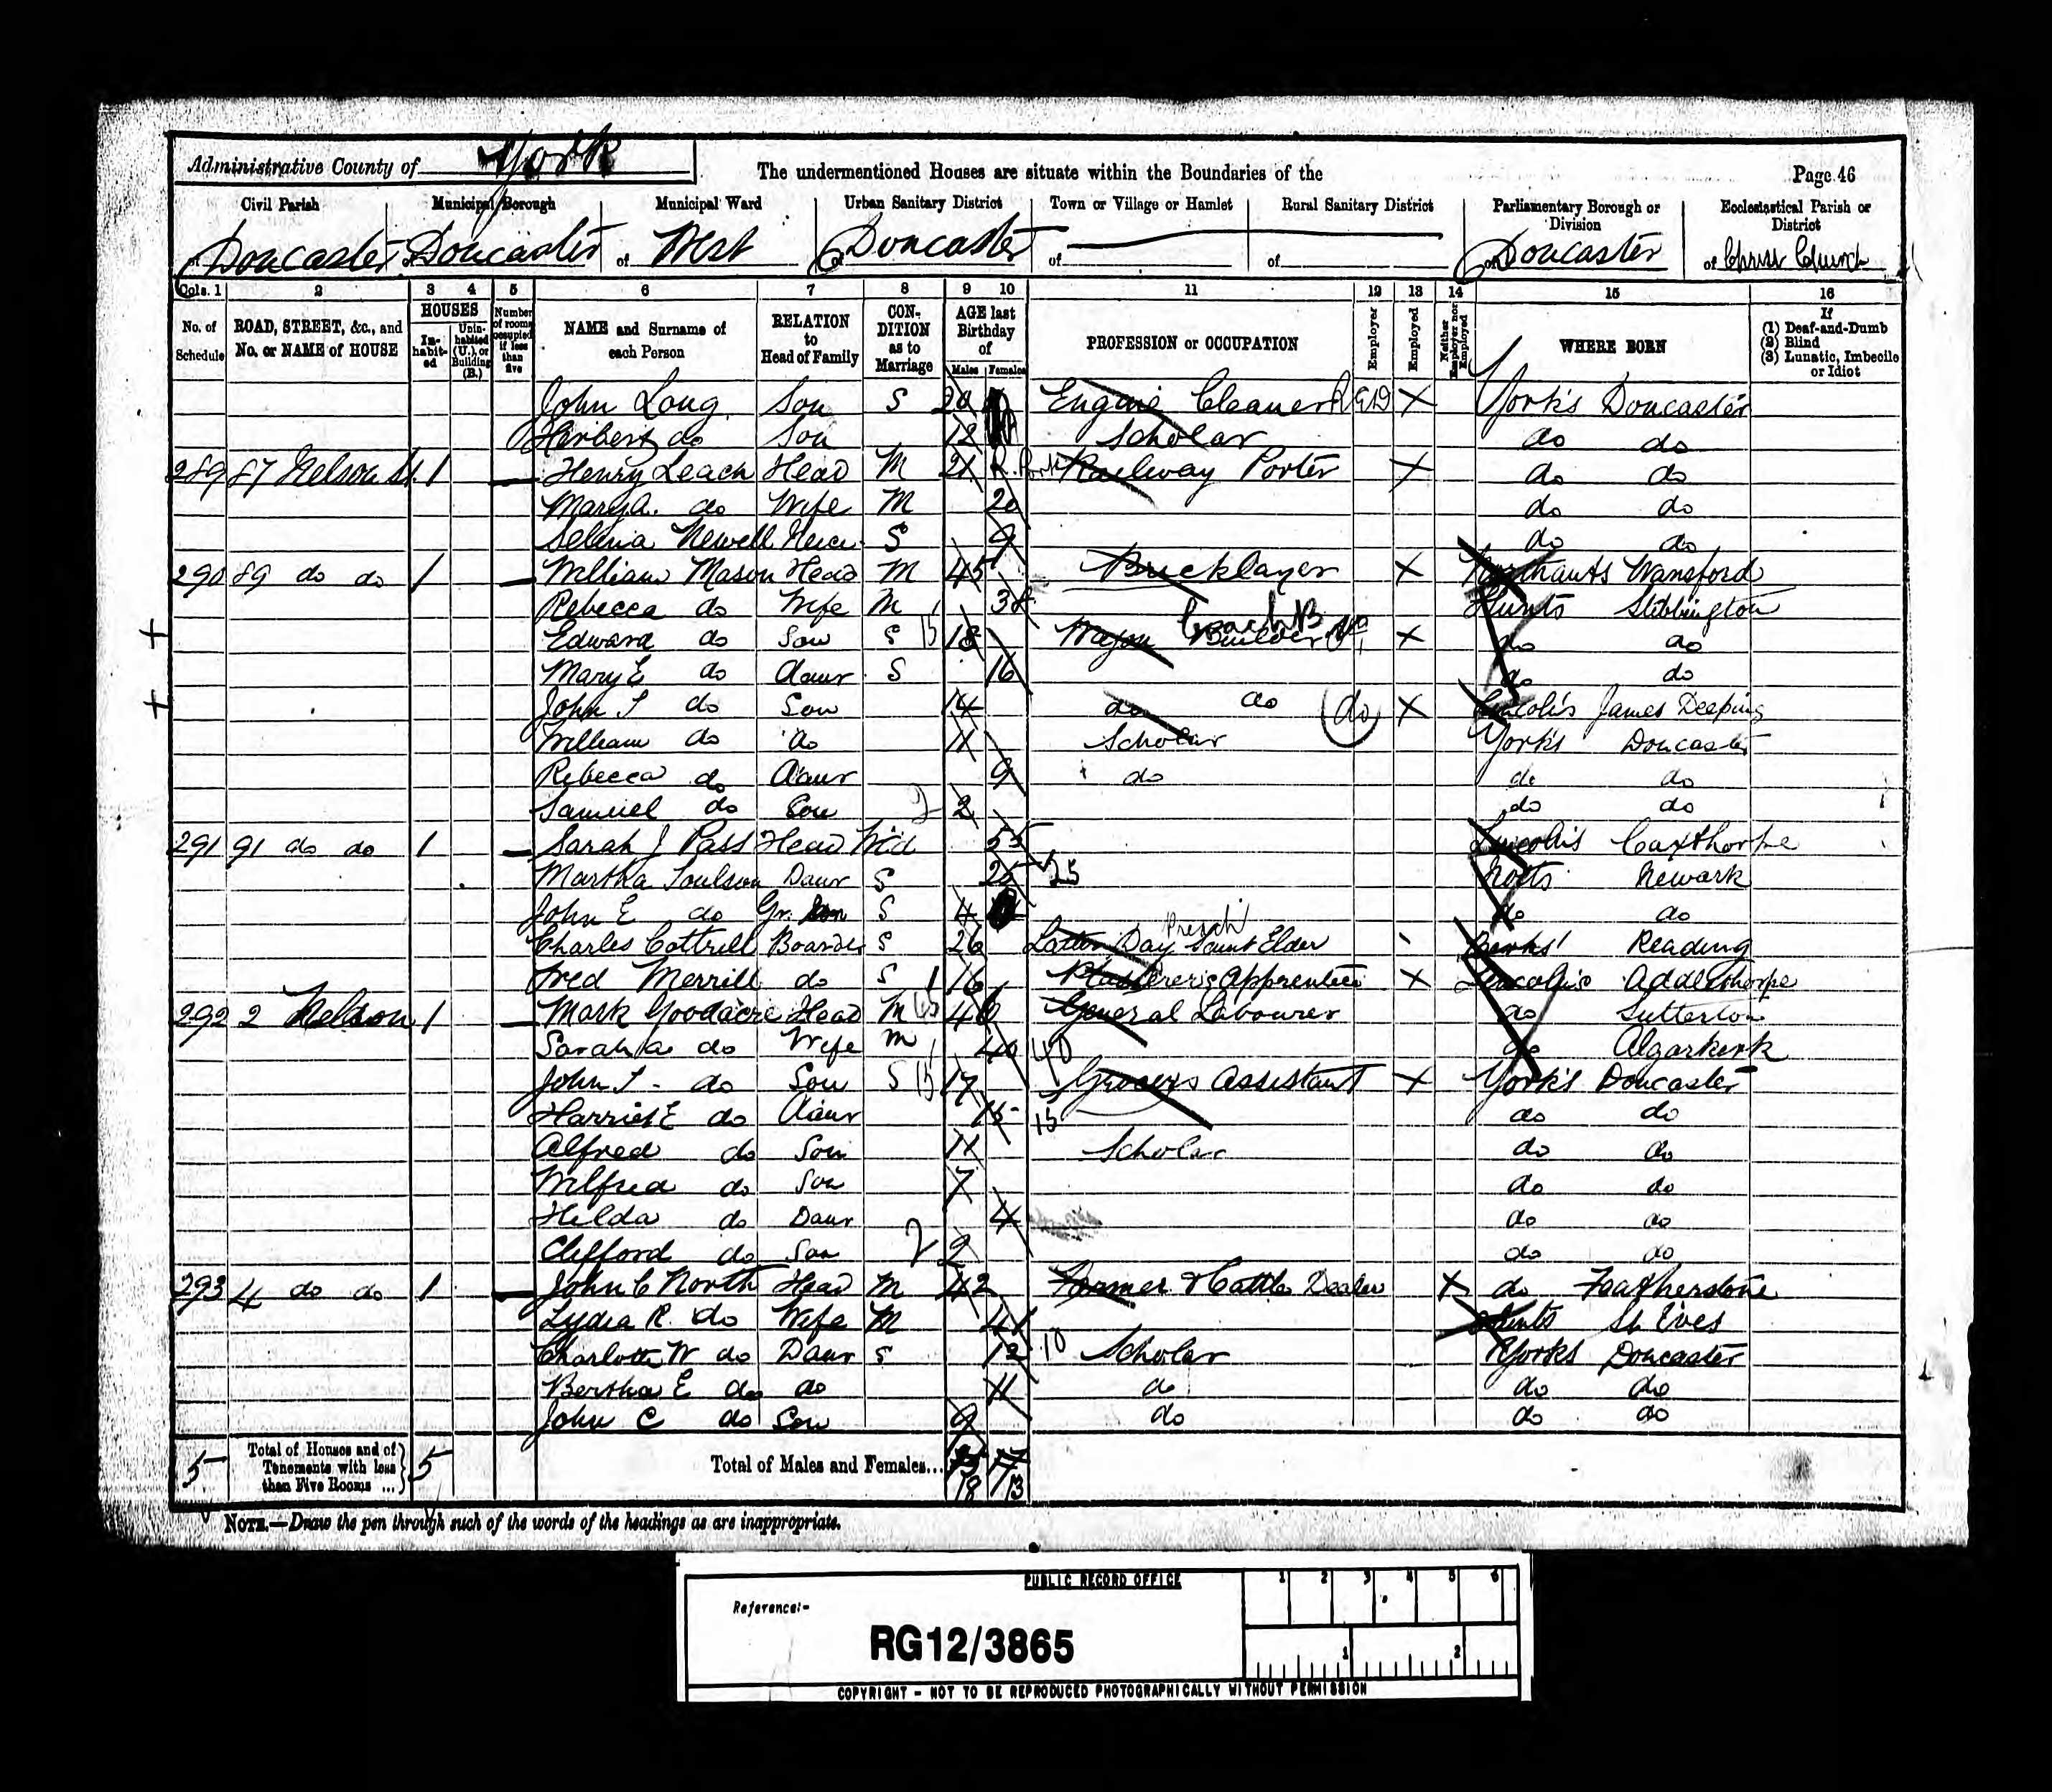 Administrative County of York
The undermentioned Houses are situate within the Boundaries of the
Page 46
Civil Parish Municipal Borough Municipal Ward Urban Sanitary District Town or Village or Hamlet Rural Sanitary District Parliamentary Borough or Division Ecclesiastical Parish or District
of Doncaster of Doncaster of West of Doncaster of of of Doncaster of Christ Church
Cols. 1 2 3 4 5 6 7 8 9 10 11 12 13 14 15 16
No. of Schedule ROAD, STREET, &c., and No. or NAME of HOUSE HOUSES In-habit-ed Unin-habited (U.), or Building (B.) Number of rooms occupied if less than five NAME and Surname of each Person RELATION to Head of Family CON-DITION as to Marriage AGE last Birthday of Males Females PROFESSION or OCCUPATION Employer Employed Neither Employer nor Employed WHERE BORN If (1) Deaf-and-Dumb (2) Blind (3) Lunatic, Imbecile or Idiot
John Long Son S 20 Engine Cleaner X Yorks Doncaster
Herbert do Son 12 Scholar do do
289 87 Nelson St. 1 Henry Leach Head M 21 Railway Porter X do do
Mary A. do Wife M 20 do do
Selina Newell Niece S 9 do do
290 89 do do 1 William Mason Head M 45 Bricklayer X Northants Wansford
Rebecca do Wife M 38 Hunts Stibbington
Edward do Son S 18 Wagon Builder Coach B X do do
Mary E do Daur S 16 do do
John T do Son 14 do do (do) X Lincolns James Deeping
William do do 11 Scholar Yorks Doncaster
Rebecca do Daur 9 do do do
Samuel do Son 2 do do
291 91 do do 1 Sarah J Pass Head Wid 55 Lincolns Caxthorpe
Martha Toulson Daur S 25 25 Notts Newark
John E do Gr. Son S 4 do do
Charles Cottrill Boarder S 26 Latter Day Saint Elder Preach Berks Reading
Fred Merrill do S 16 Plasterers Apprentice X Lincolns Addlethorpe
292 2 Nelson 1 Mark Goodacre Head M 46 General Labourer do Sutterton
Sarah A do Wife M 40 40 do Algarkirk
John T do Son S 17 Grocers Assistant X Yorks Doncaster
Harriet E do Daur 15 15 do do
Alfred do Son 11 Scholar do do
Wilfred do Son 7 do do
Hilda do Daur 4 do do
Clifford do Son 2 do do
293 4 do do 1 John C North Head M 42 Farmer & Cattle Dealer X do Featherstone
Lydia R. do Wife M 41 Hunts St Ives
Charlotte W do Daur S 12 10 Scholar Yorks Doncaster
Bertha E do do 11 do do do
John C do Son 9 do do do
5 Total of Houses and of Tenements with less than Five Rooms ... 5 Total of Males and Females... 18 13
NOTE.—Draw the pen through such of the words of the headings as are inappropriate.
PUBLIC RECORD OFFICE
1 2 3 4 5 6
Reference:-
RG12/3865
1 2
COPYRIGHT - NOT TO BE REPRODUCED PHOTOGRAPHICALLY WITHOUT PERMISSION